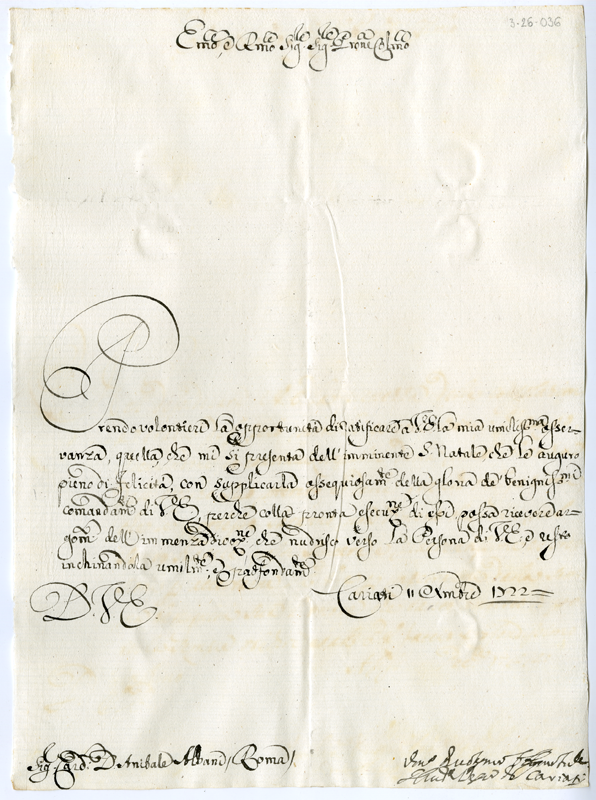 3-26-036
Em̃o, e Rm̃o Sig.r Sig.r P̃rone Col̃mo
Prendo volontieri la opportunità di ratificare a V.E. la mia umiliss.ma osser-
vanza, quella, che mi si presenta dell'imminente S. Natale che le auguro
pieno di felicità, con supplicarla ossequiosam.te della gloria de benigniss.mi
comandam.ti di V.E., perche colla pronta esecu.ne di essi possa ricevere ar-
gom.ti dell'immenza divoz.ne, che nudrisco verso la Persona di V.E. e resto
inchinandola umilm.te, e profondam.te
D. V.E. Cariati 11 Xmbre 1722
Sig.r Card. D. Anibale Albani / Roma /